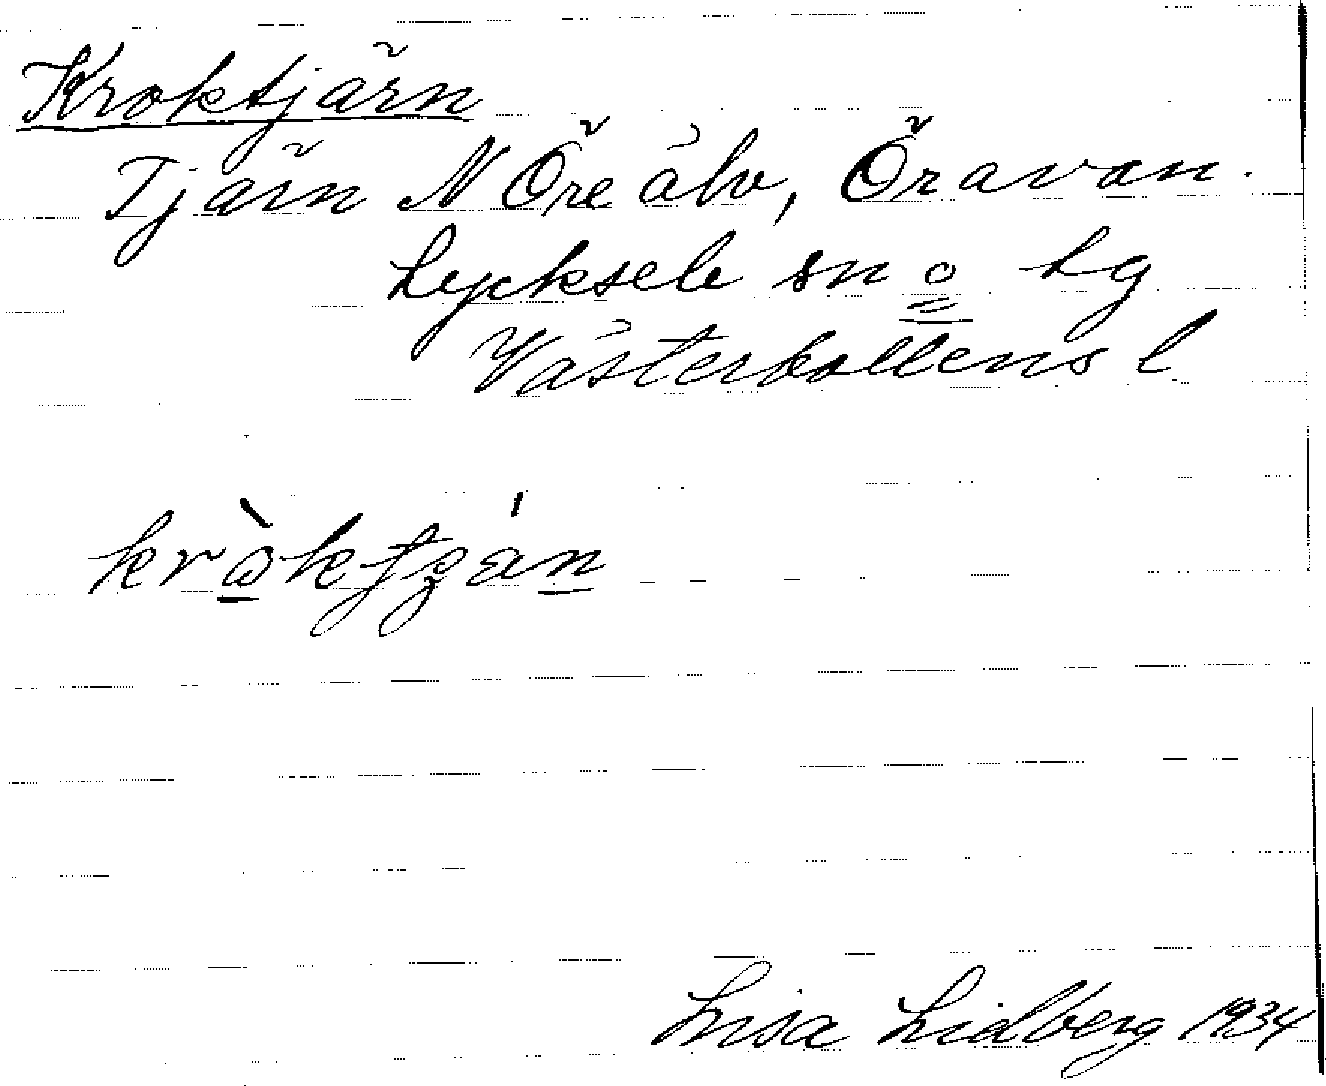 Kroktjärn
Tjärn N Öre älv, Öravan.
Lycksele sn o Lg
Västerbottens l
Lisa Lidberg 1934